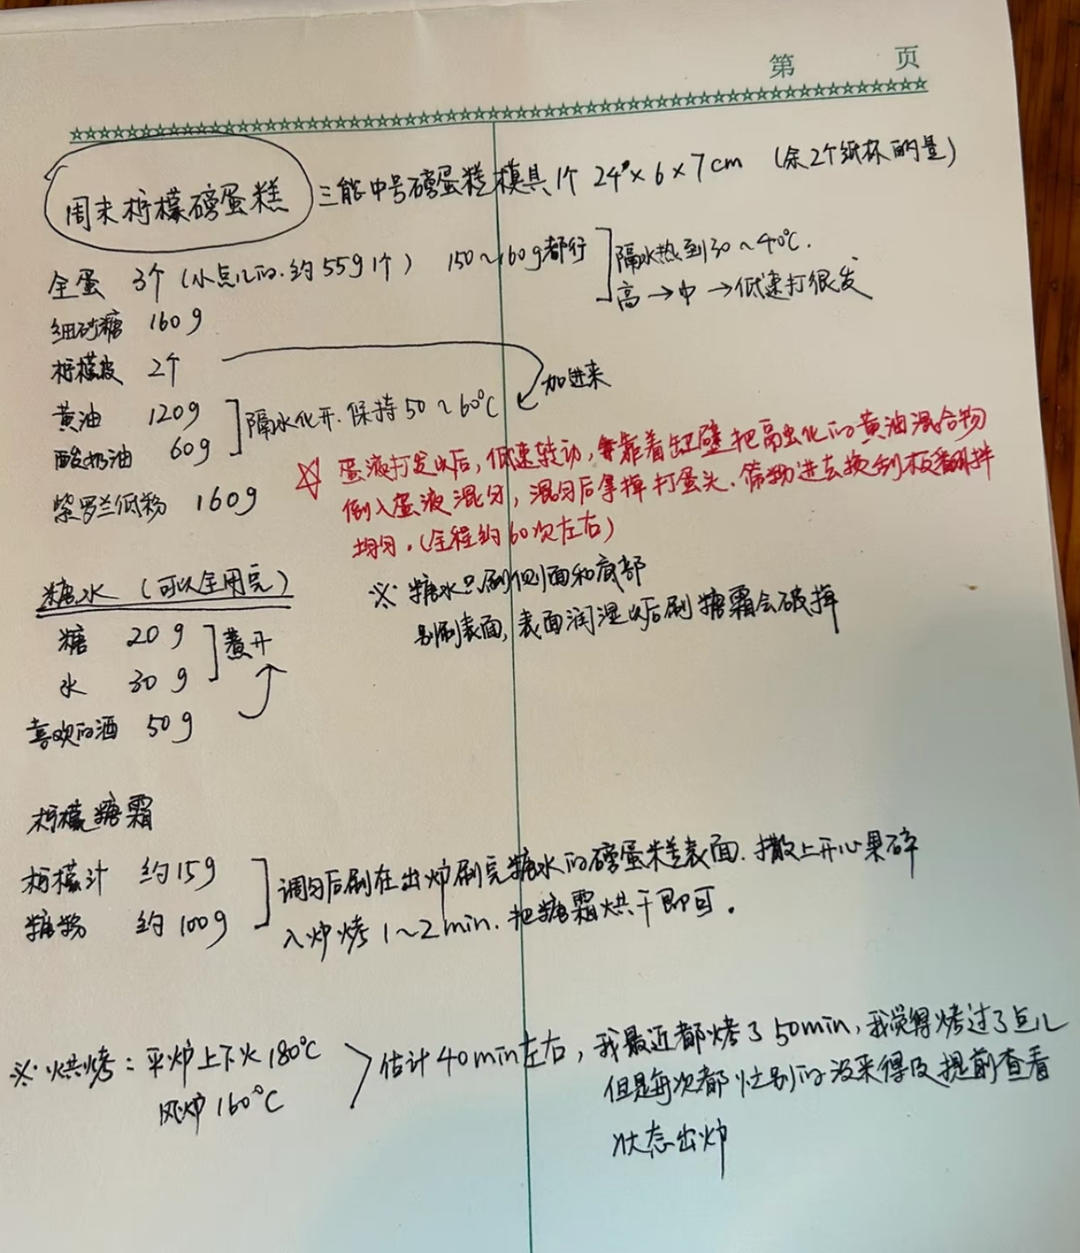 第 页
周末柠檬磅蛋糕 三能中号磅蛋糕模具1个 24*×6×7cm (余2个纸杯的量)
全蛋 3个(小点儿的.约55g1个) 150~160g都行
隔水热到30~40℃.
高→中→低速打很发
细砂糖 160g
柠檬皮 2个
加进来
黄油 120g
酸奶油 60g
隔水化开.保持50~60℃
紫罗兰低粉 160g
☆ 蛋液打发以后,低速转动,靠着缸壁把融化的黄油混合物
倒入蛋液混匀,混匀后拿掉打蛋头.筛粉进去换刮板翻拌
均匀.(全程约60次左右)
糖水(可以全用完)
糖 20g
水 30g
煮开
喜欢的酒 50g
※ 糖水只刷侧面和底部
别刷表面,表面润湿以后刷糖霜会破掉
柠檬糖霜
柠檬汁 约15g
糖粉 约100g
调匀后刷在出炉刷完糖水的磅蛋糕表面.撒上开心果碎
入炉烤1~2min.把糖霜烘干即可。
※烘烤:平炉上下火180℃
风炉160℃
估计40min左右,我最近都烤了50min,我觉得烤过了点儿
但是每次都忙别的没来得及提前查看
状态出炉